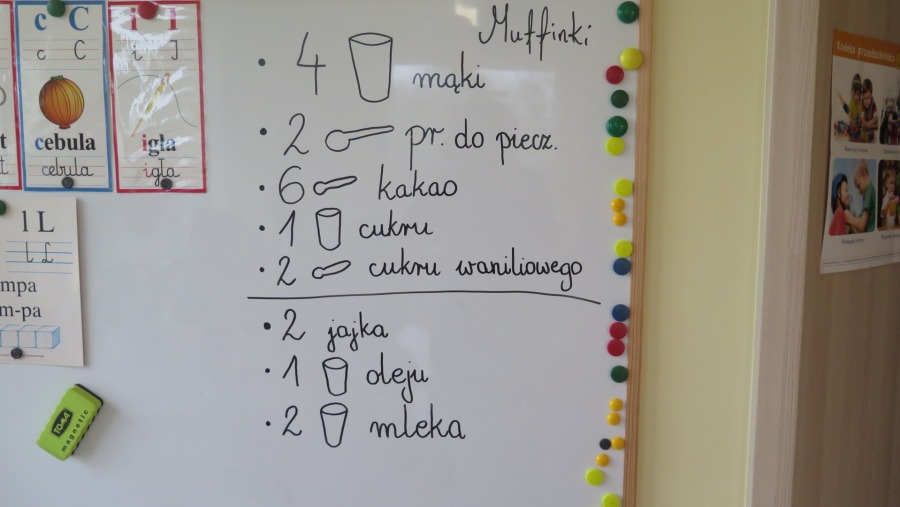 c C
c C
cebula
cebula
i I
i I
igła
igła
l L
l L
mpa
m-pa
TOMA
magnetic
Muffinki
• 4 mąki
• 2 pr. do piecz.
• 6 kakao
• 1 cukru
• 2 cukru waniliowego
• 2 jajka
• 1 oleju
• 2 mleka